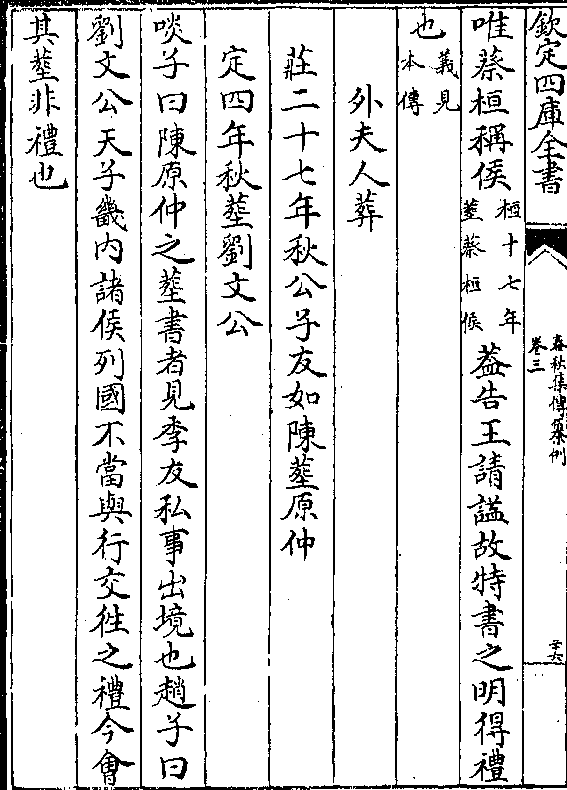 欽定四庫全書
春秋集傳纂例
卷三
二十六
唯蔡桓稱侯桓十七年葬蔡桓侯葢告王請諡故特書之明得禮
也義見本傳
外夫人葬
莊二十七年秋公子友如陳葬原仲
定四年秋葬劉文公
啖子曰陳原仲之葬書者見季友私事出境也趙子曰
劉文公天子畿内諸侯列國不當與行交往之禮今會
其葬非禮也